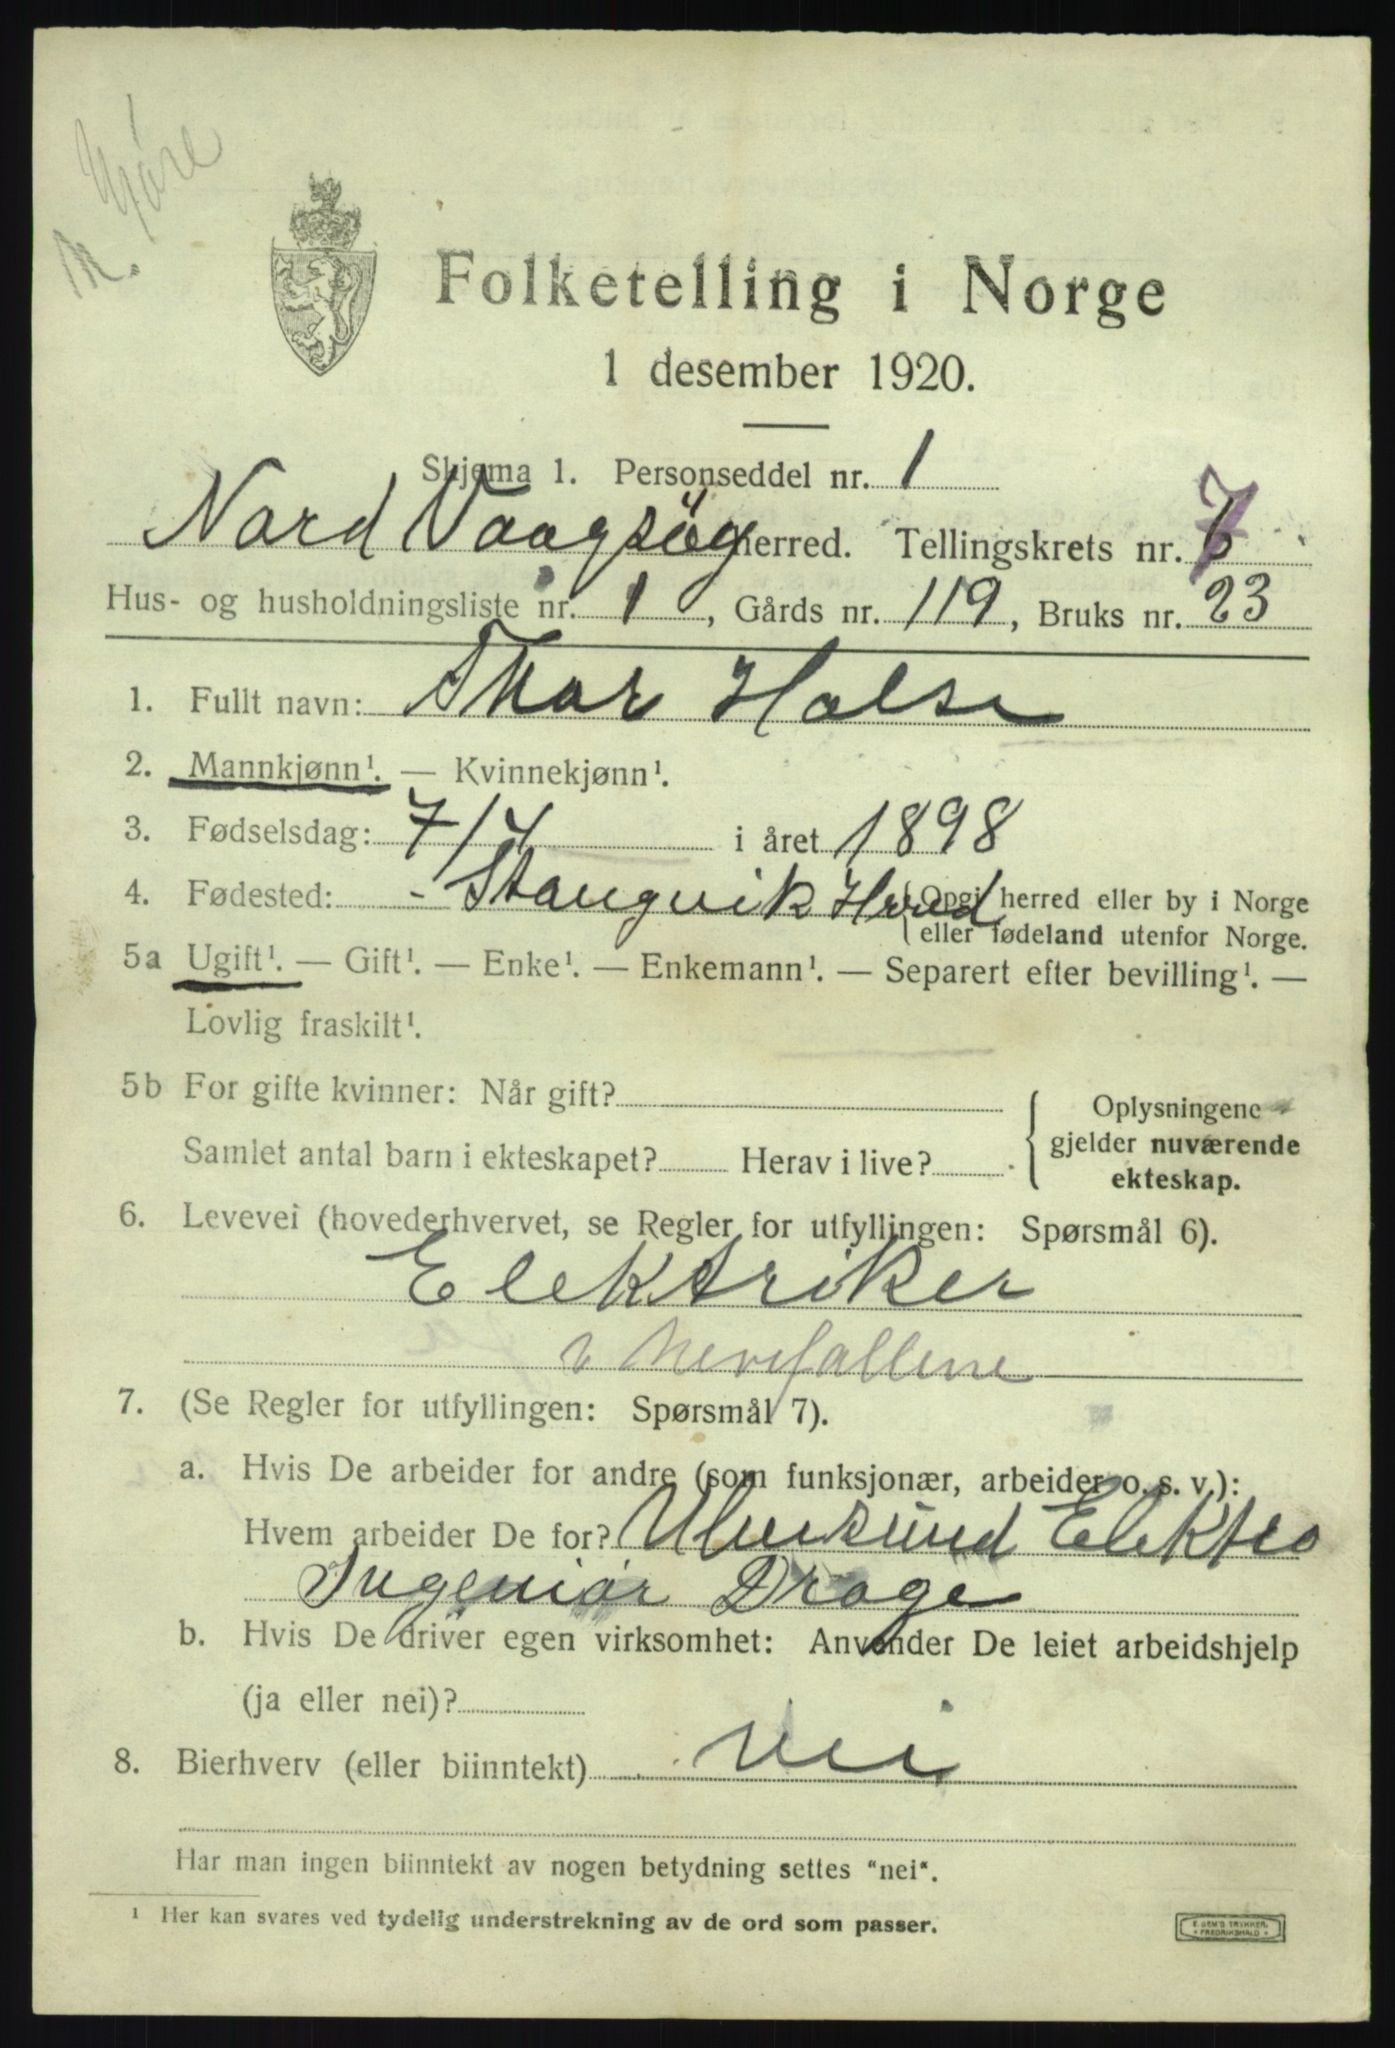 Folketelling i Norge
1 desember 1920.
Skjema 1. Personseddel nr. 1
Nord Vaagsöy herred. Tellingskrets nr. 7
Hus- og husholdningsliste nr. 1, Gårds nr. 119, Bruks nr. 23
1. Fullt navn: Thor Halse
2. Mannkjønn¹. — Kvinnekjønn¹.
3. Fødselsdag: 7/4 i året 1898
4. Fødested: - Stangvik Hered { Opgi herred eller by i Norge
eller fødeland utenfor Norge.
5a Ugift¹. — Gift¹. — Enke¹. — Enkemann¹. — Separert efter bevilling¹. —
Lovlig fraskilt¹.
5b For gifte kvinner: Når gift?
Samlet antal barn i ekteskapet? Herav i live?
Oplysningene
gjelder nuværende
ekteskap.
6. Levevei (hovederhvervet, se Regler for utfyllingen: Spørsmål 6).
Elektriker
7. (Se Regler for utfyllingen: Spørsmål 7).
a. Hvis De arbeider for andre (som funksjonær, arbeider o. s. v.):
Hvem arbeider De for? Ulvesund Elektro
Ingeniør Drage
b. Hvis De driver egen virksomhet: Anvender De leiet arbeidshjelp
(ja eller nei)?
8. Bierhverv (eller biinntekt) nei
Har man ingen biinntekt av nogen betydning settes "nei".
¹ Her kan svares ved tydelig understrekning av de ord som passer.
E. SEM'S TRYKKERI
FREDRIKSHALD